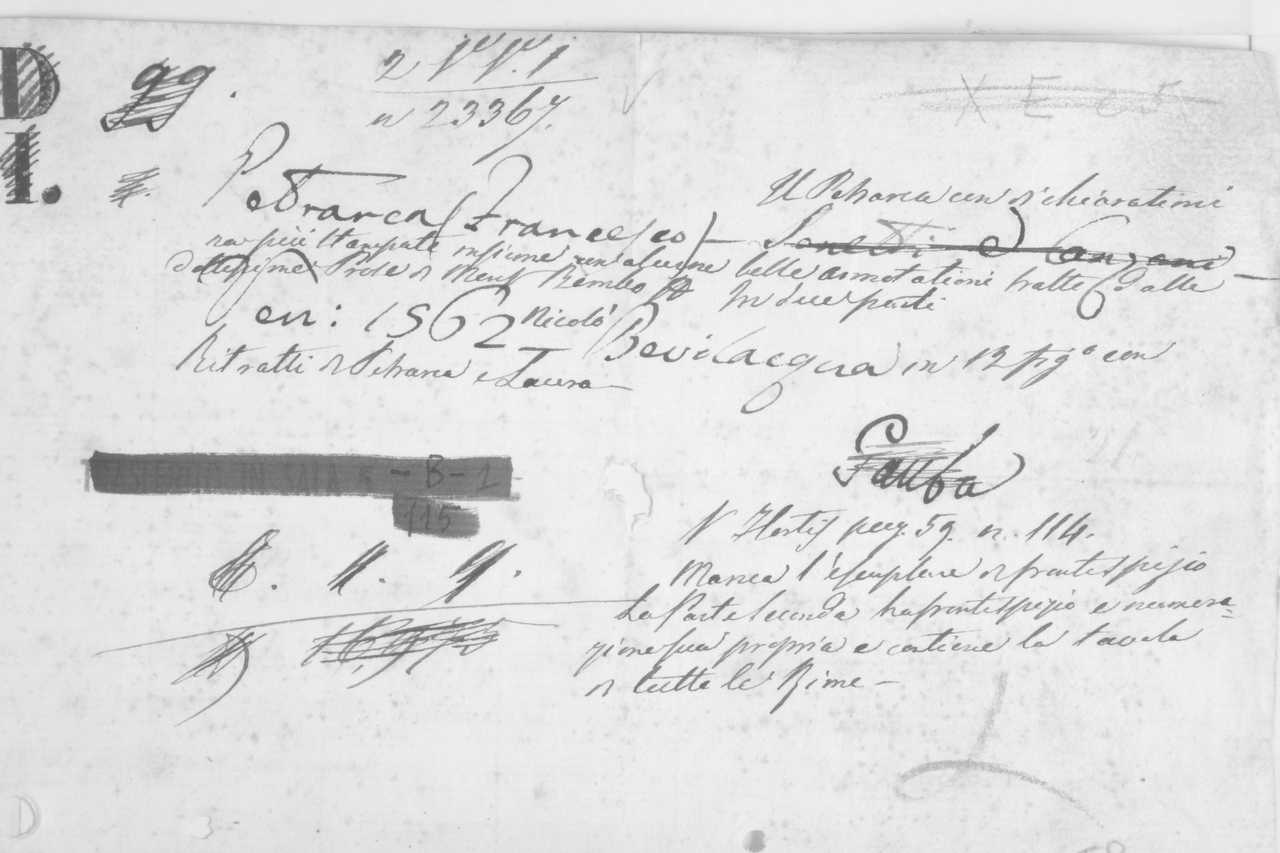 D gg.
1.
2 VV. 1
n 23367.
X E
Il Petrarca con dichiarationi
Petrarca (Francesco) — Sonetti e Canzoni —
non più stampate insieme con alcune belle annotationi tratte dalle
dottissime Prose di Mons Bembo In due parti
en: 1562 Nicolò Bevilacqua in 12 fig° con
Ritratti di Petrarca e Laura —
Gamba
TRASFERITO IN SALA 5 - B - 1 -
115
V Hortis pag. 59. n. 114.
Manca l'esemplare di frontespizio
La Parte Seconda ha frontespizio e numera=
zione sua propria e contiene la tavola
di tutte le Rime —
D 3